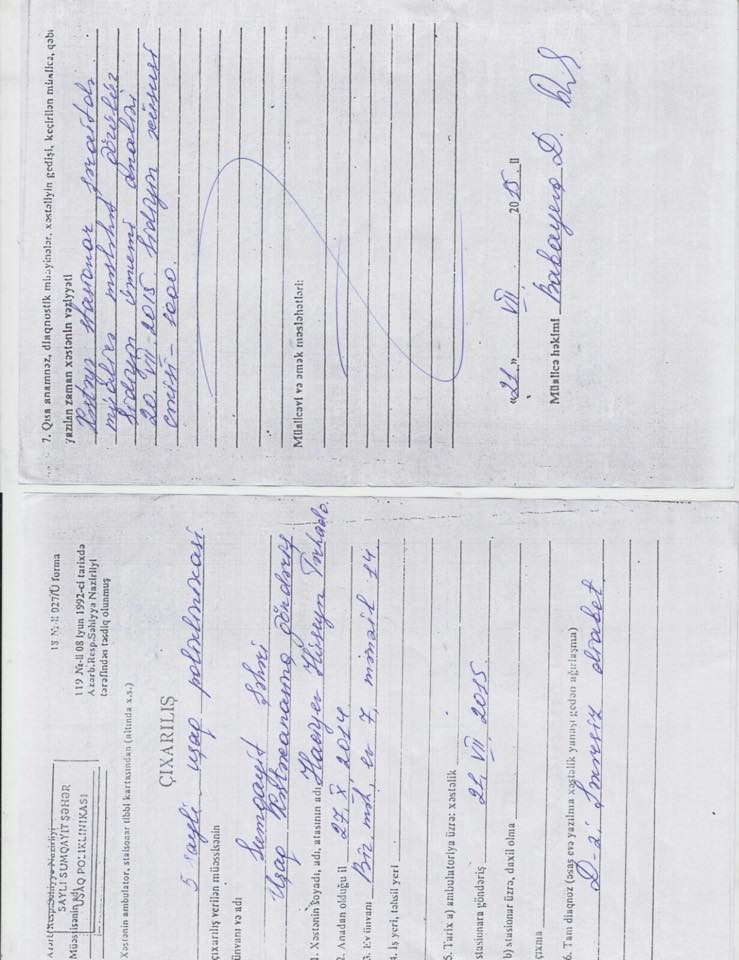 Azərb.Resp.Səhiyyə Nazirliyi
SAYLI SUMQAYIT ŞƏHƏR
Müəssisənin adı
UŞAQ POLİKLİNİKASI
18 №-li 027/U forma
119 №-li 08 iyun 1992-ci tarixdə
Azərb.Resp.Səhiyyə Nazirliyi
tərəfindən təsdiq olunmuş
Xəstənin ambulator, stasionar tibbi kartasından (altında x.s.)
ÇIXARILIŞ
5 saylı uşaq poliklinikasi
çıxarılış verilən müəssisənin
ünvanı və adı
Sumqayit şəhəri
Uşaq Xəstəxanasına göndəriş
1. Xəstənin soyadı, adı, atasının adı Hüseyn
2. Anadan olduğu il 27.X.2014
3. Ev ünvanı ev 7, mənzil 14
4. İş yeri, təhsil yeri
5. Tarix a) ambulatoriya üzrə: xəstəlik
stasionara göndəriş 21.VII.2015
b) stasionar üzrə, daxil olma
çıxma
6. Tam diaqnoz (əsas evə yazılma xəstəlik yanaşı gedən ağırlaşma)
D-z: Şəkərsiz diabet
7. Qısa anamnez, diaqnostik müayinələr, xəstəliyin gedişi, keçirilən müalicə, qəbi
yazılan zaman xəstənin vəziyyəti
Xəstəyə stasionar şəraitdə
müalicə məsləhət görülür
Sidiyin ümumi analizi
20.VII.2015 Sidiyin xüsusi
çəkisi – 1000.
Müalicəvi və əmək məsləhətləri:
«21» VII 2015 il
Müalicə həkimi Babayeva D.